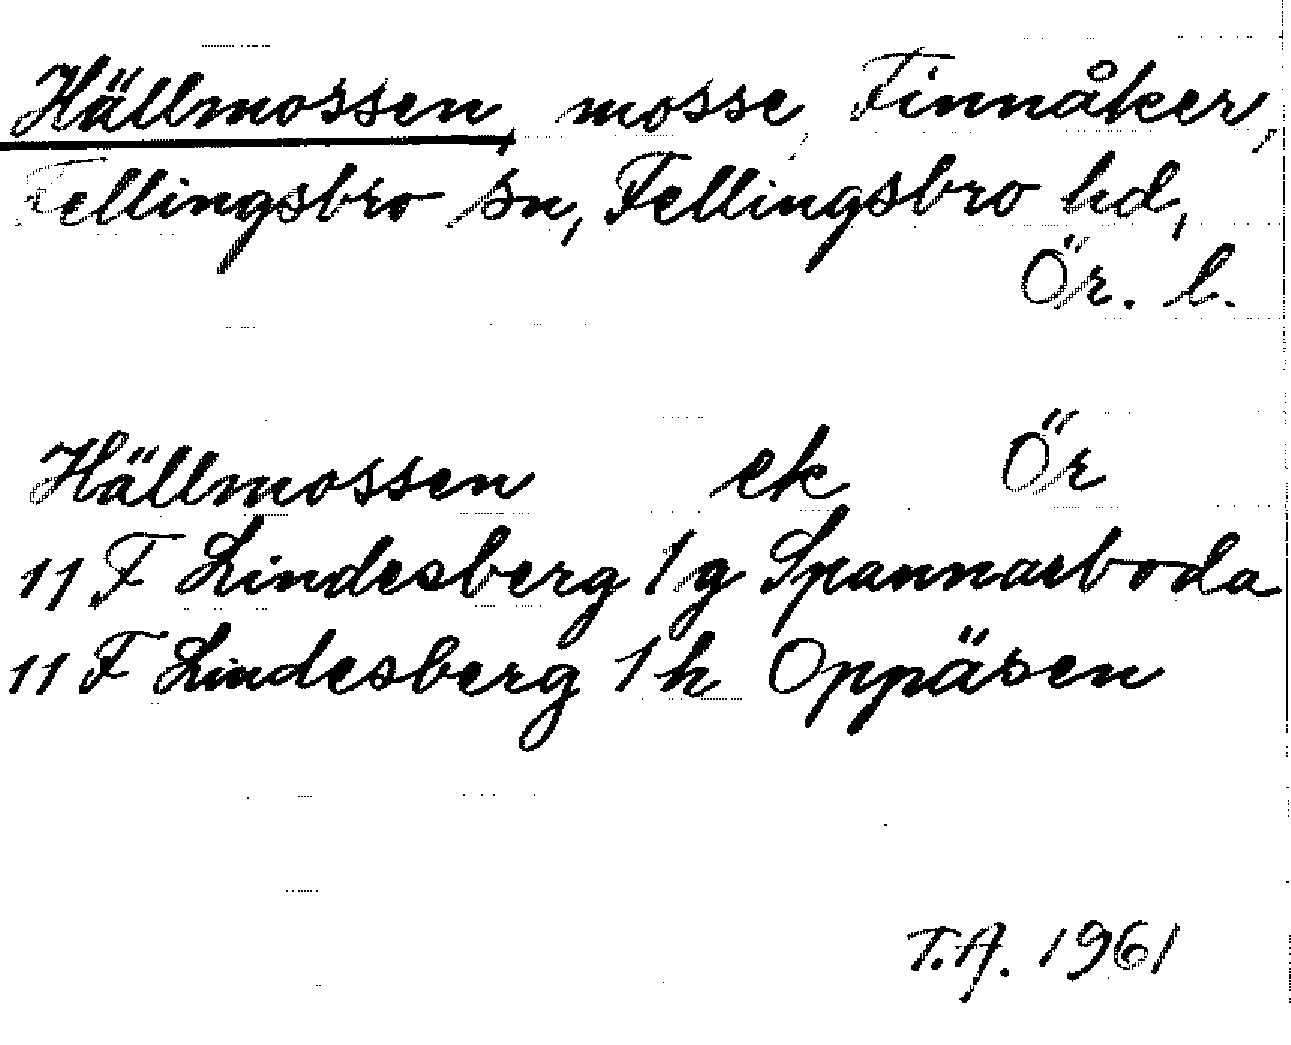 Hällmossen, mosse, Finnåker,
Fellingsbro sn, Fellingsbro hd,
Ör. l.
Hällmossen ek Ör
11 F Lindesberg 1 g Spannarboda
11 F Lindesberg 1 h Oppäsen
T.A. 1961